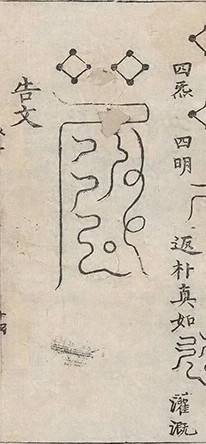 四炁 四明 返朴真如 灌溉
告文